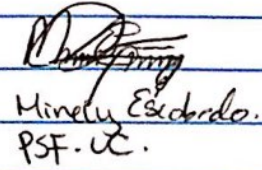 Minely Escobedo.
PSF. UC.